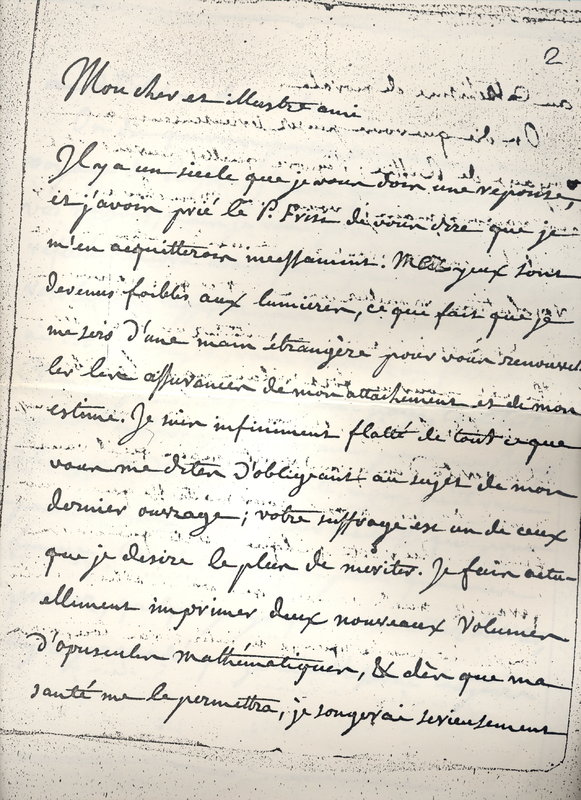 2
Mon cher et illustre ami
Il y a un siecle que je vous dois une reponse,
et j'avois prié le P. Frisi de vous dire que je
m'en acquitterois incessament. Mes yeux sont
devenus foibles aux lumieres, ce qui fait que je
me sers d'une main étrangère pour vous renouvel
ler les assurances de mon attachement et de mon
estime. Je suis infiniment flatté de tout ce que
vous me dites d'obligeant au sujet de mon
dernier ouvrage; votre suffrage est un de ceux
que je desire le plus de mériter. Je fais actu-
ellement imprimer deux nouveaux Volumes
d'opuscules mathématiques, & dès que ma
santé me le permettra, je songerai serieusement